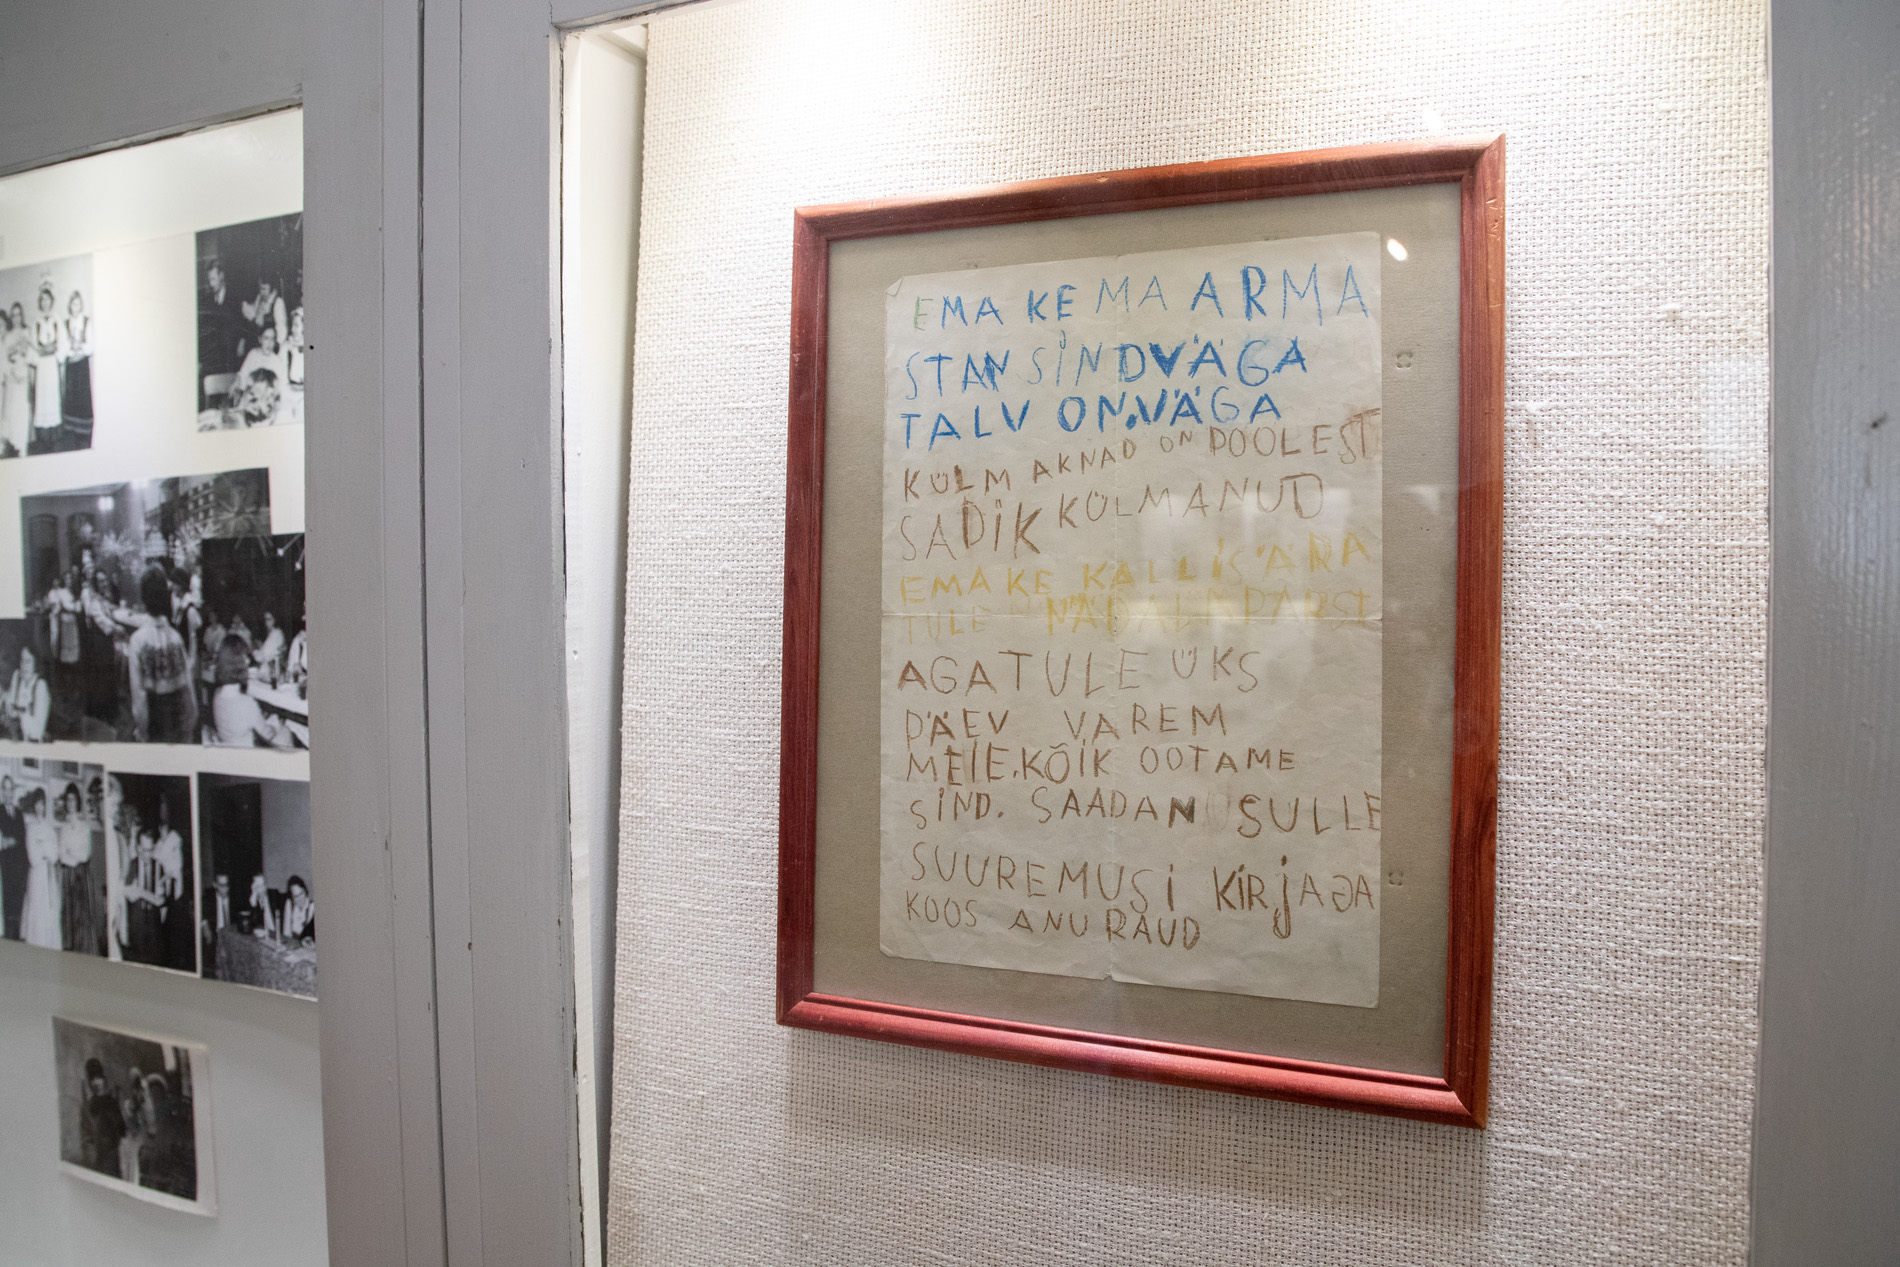 EMAKE MA ARMA
STAN SIND VÄGA
TALV ON VÄGA
KÜLM AKNAD ON POOLEST
SADIK KÜLMANUD
EMAKE KALLIS ÄRA
TULE NÄDALAPÄRAST
AGA TULE ÜKS
PÄEV VAREM
MEIE.KÕIK OOTAME
SIND. SAADAN SULLE
SUUREMUSI KIRJAGA
KOOS ANU RAUD